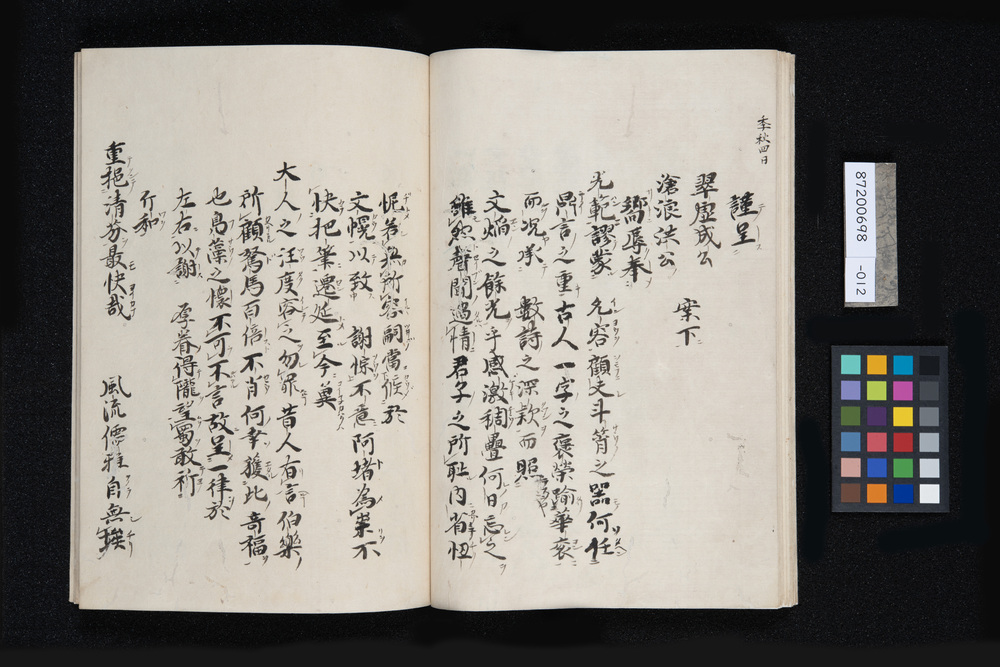 季秋四日
謹呈
翠虚成公
滄浪洪公　案下
嚮辱奉
光範謬蒙　允容顧夫斗筲之器何任
鼎言之重古人一字之褒榮踰華袞
而况承　數詩之深款而照
文焔之餘光乎感激稠疊何日忘之
雖然聲聞過情君子之所耻内省忸
怩若無所容嗣當候於
文幌以致　謝悰不意阿堵為祟不
快把筆遷延至今莫
大人之汪度容之勿罪昔人有言伯樂
所顧駑馬百倍不肖何幸獲此奇福
也鳧藻之懷不可不言故呈一律於
左右以謝　厚眷得隴望蜀敢祈
行和
重挹清芬最快哉　風流儒雅自無挨
87200698
-012